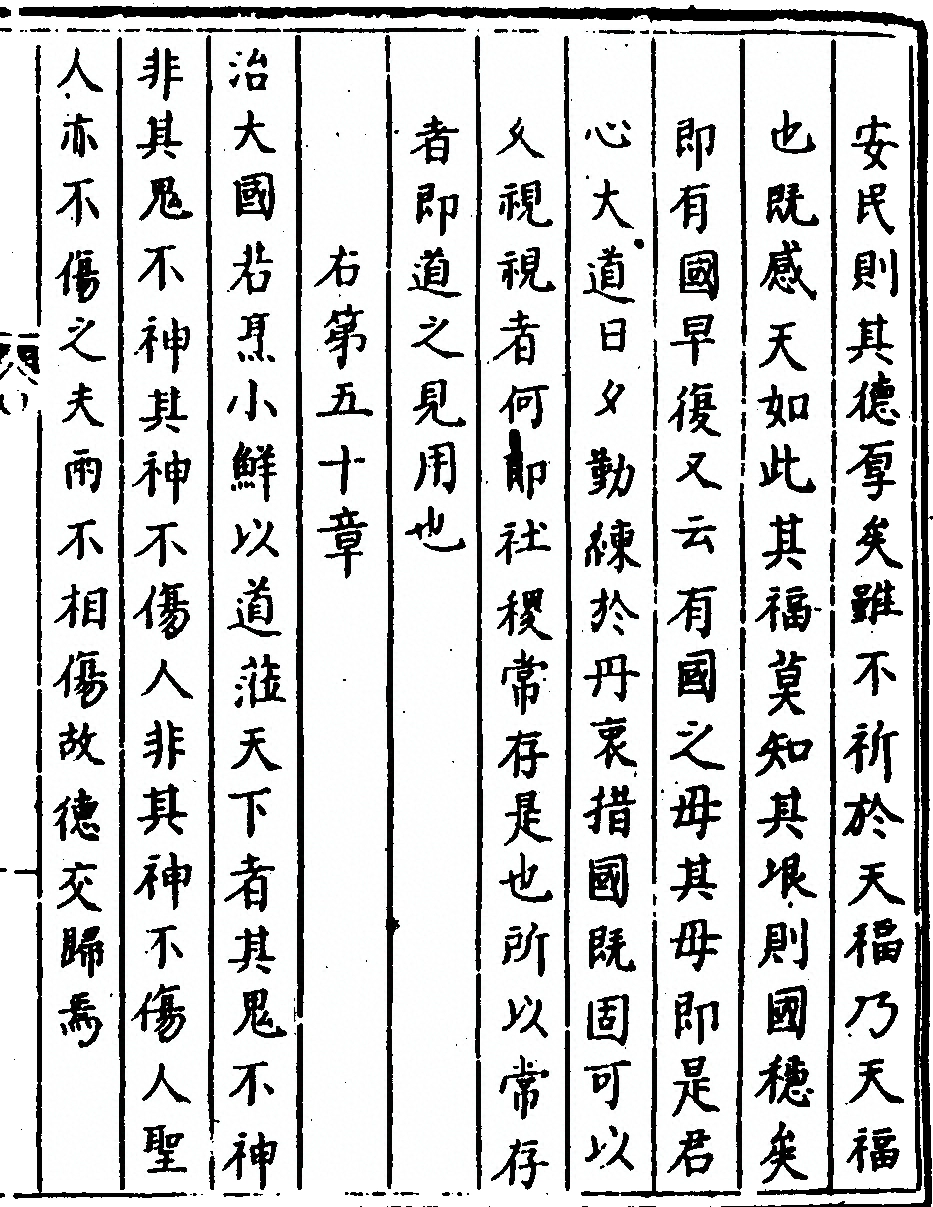 安民則其德厚矣雖不祈於天福乃天福
也既感天如此其福莫知其垠則國穩矣
即有國早復又云有國之母其母即是君
心大道日夕勤練於丹衷措國既固可以
久視視者何即社稷常存是也所以常存
者即道之見用也
右第五十章
治大國若烹小鮮以道蒞天下者其鬼不神
非其鬼不神其神不傷人非其神不傷人聖
人亦不傷之夫兩不相傷故德交歸焉